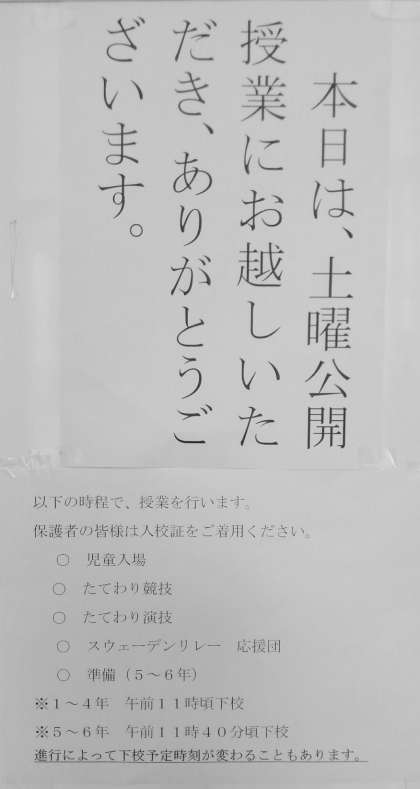 本日は、土曜公開
授業にお越しいた
だき、ありがとうご
ざいます。
以下の時程で、授業を行います。
保護者の皆様は入校証をご着用ください。
○　児童入場
○　たてわり競技
○　たてわり演技
○　スウェーデンリレー　応援団
○　準備（５～６年）
※１～４年　午前１１時頃下校
※５～６年　午前１１時４０分頃下校
進行によって下校予定時刻が変わることもあります。